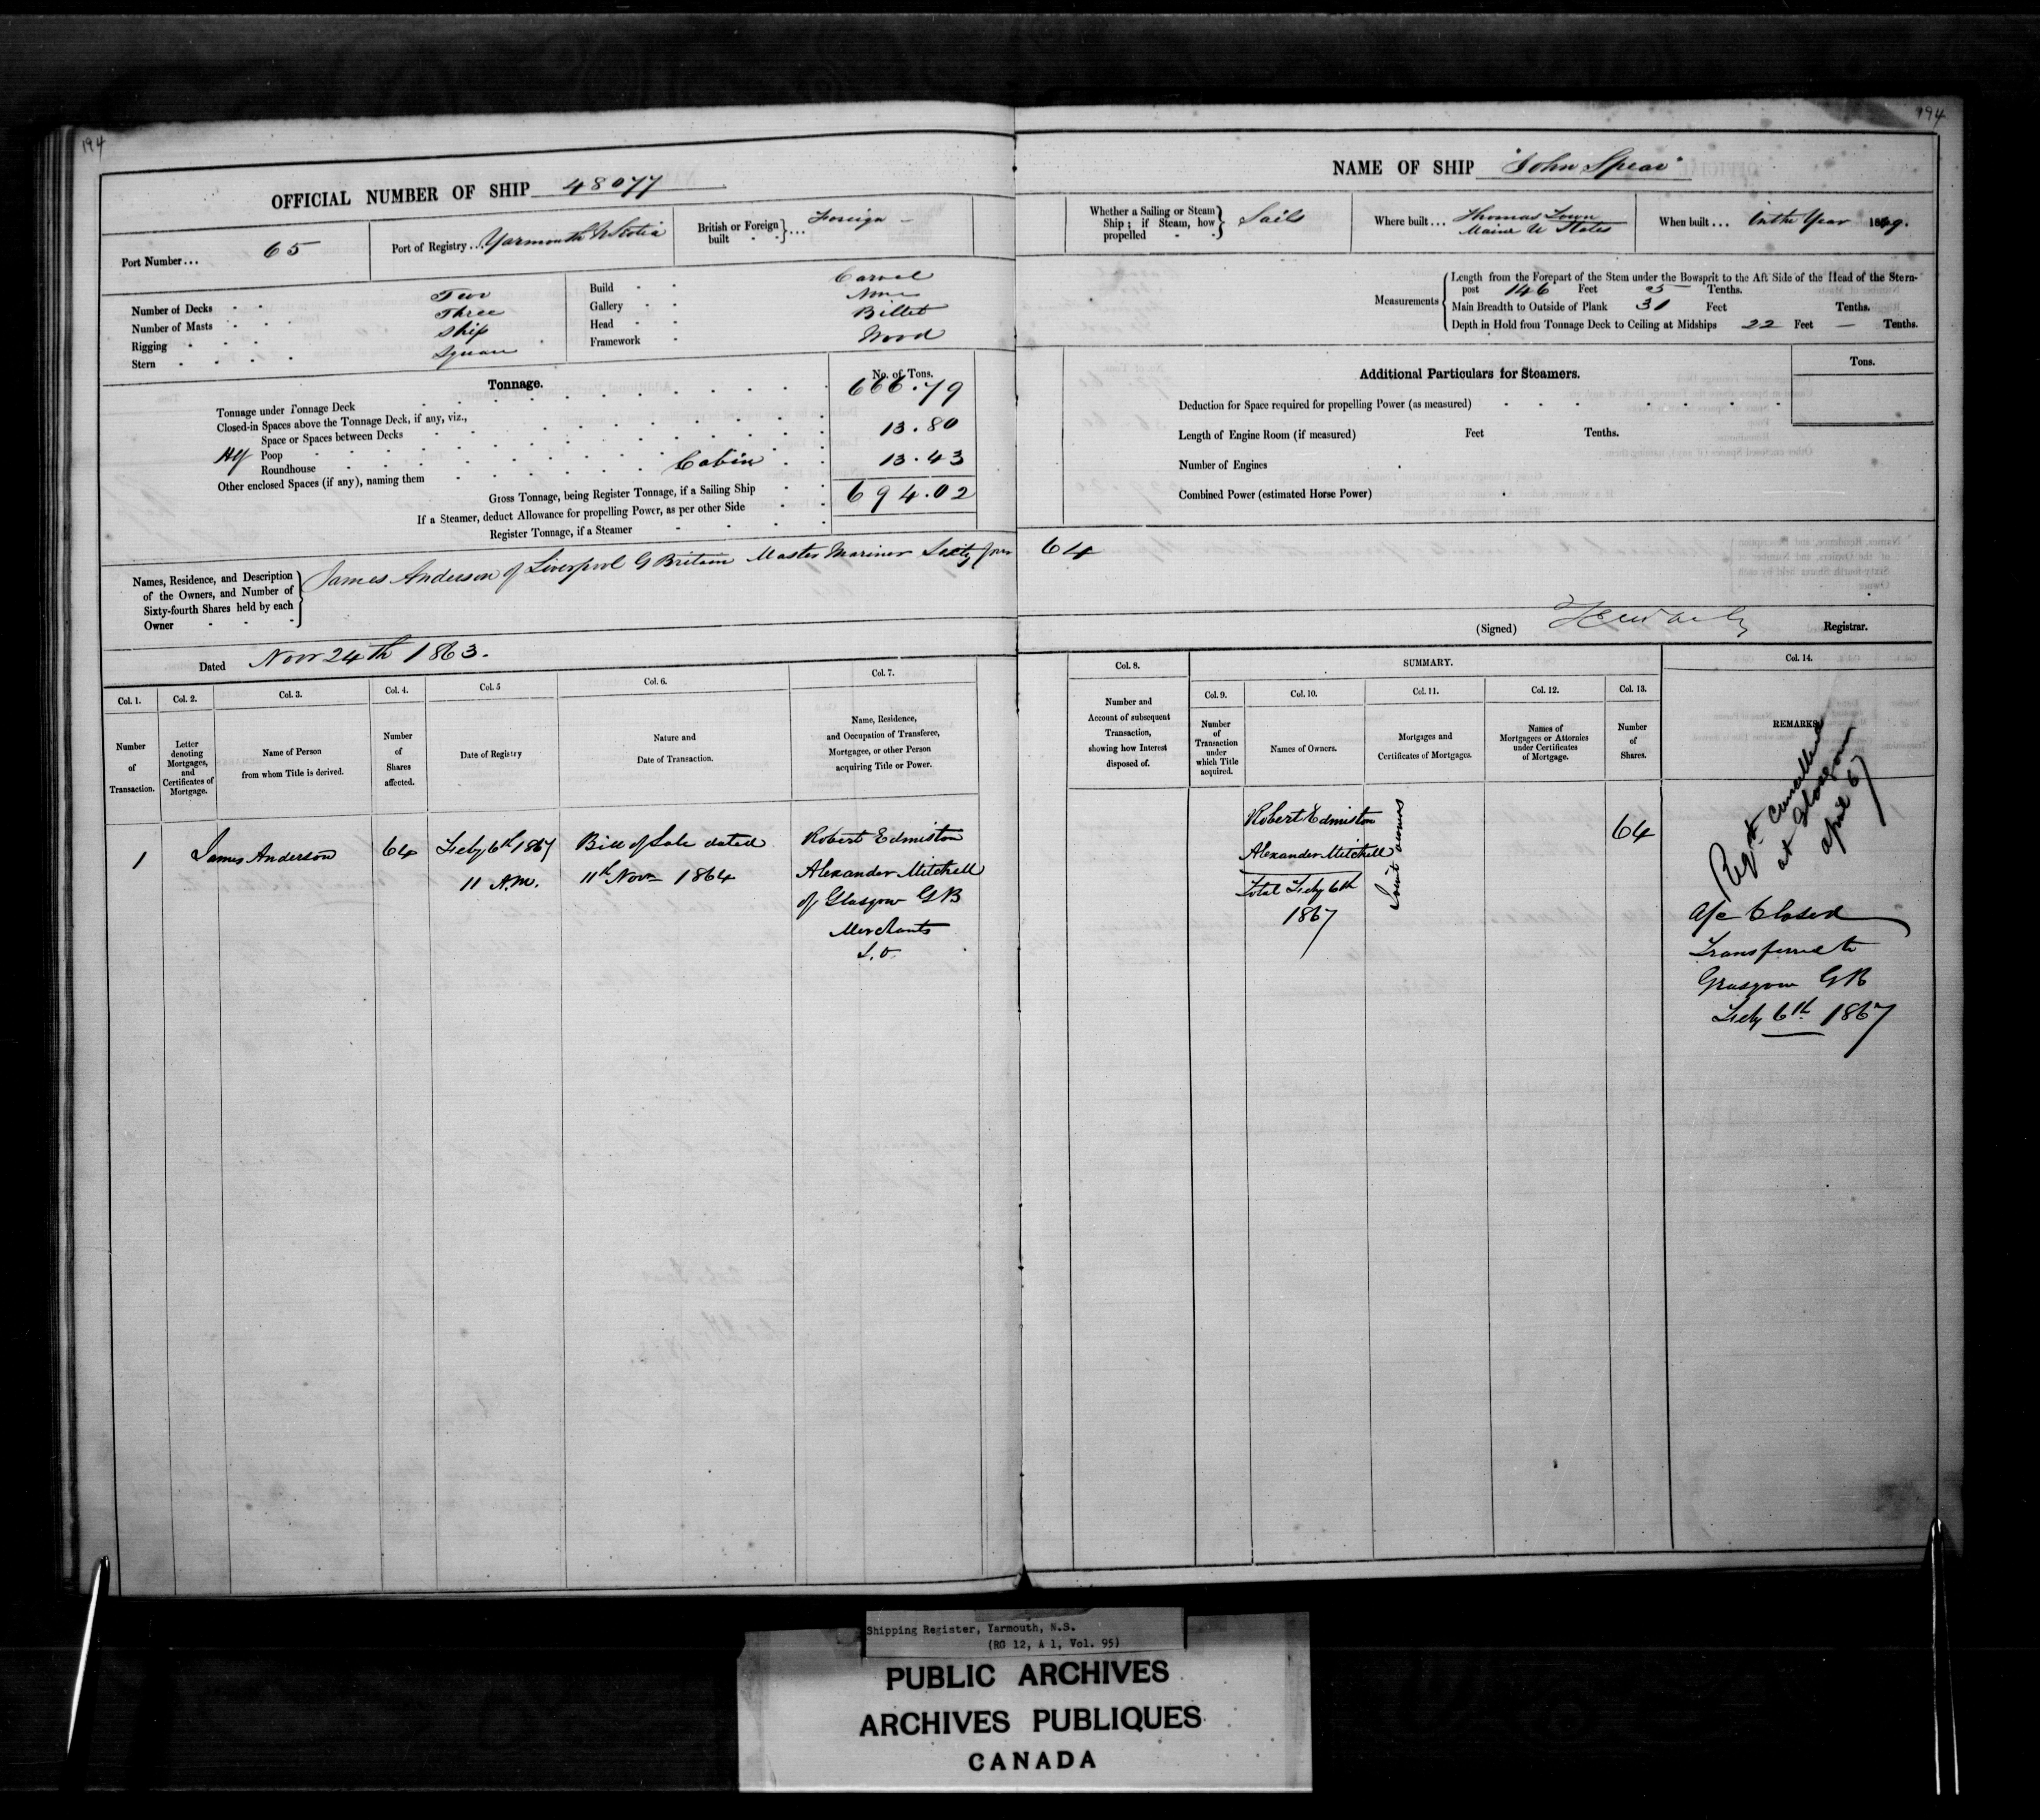 194
OFFICIAL NUMBER OF SHIP 48077
Port Number... 65
Port of Registry... Yarmouth N Scotia
British or Foreign built } ... Foreign –
Number of Decks Two
Number of Masts Three
Rigging Ship
Stern Square
Build Carvel
Gallery None
Head Billet
Framework Wood
Tonnage.
No. of Tons.
Tonnage under Tonnage Deck 666.79
Closed-in Spaces above the Tonnage Deck, if any, viz.,
Space or Spaces between Decks
Hlf Poop 13.80
Roundhouse
Other enclosed Spaces (if any), naming them Cabin 13.43
Gross Tonnage, being Register Tonnage, if a Sailing Ship 694.02
If a Steamer, deduct Allowance for propelling Power, as per other Side
Register Tonnage, if a Steamer
Names, Residence, and Description
of the Owners, and Number of
Sixty-fourth Shares held by each
Owner
James Anderson of Liverpool G Britain Master Mariner Sixty four
Dated Novr 24th 1863.
Col. 1.
Number
of
Transaction.
Col. 2.
Letter
denoting
Mortgages,
and
Certificates of
Mortgage.
Col. 3.
Name of Person
from whom Title is derived.
Col. 4.
Number
of
Shares
affected.
Col. 5
Date of Registry
Col. 6.
Nature and
Date of Transaction.
Col. 7.
Name, Residence,
and Occupation of Transferee,
Mortgagee, or other Person
acquiring Title or Power.
1
James Anderson
64
Feby 6th 1867
11 A.M.
Bill of Sale dated
11th Novr 1864
Robert Edmiston
Alexander Mitchell
of Glasgow GB
Merchants
J.O.
194
NAME OF SHIP "John Spear"
Whether a Sailing or Steam
Ship; if Steam, how
propelled
Sails
Where built... Thomas Town
Maine U States
When built... In the Year 1849.
Measurements
Length from the Forepart of the Stem under the Bowsprit to the Aft Side of the Head of the Stern-
post 146 Feet 5 Tenths.
Main Breadth to Outside of Plank 31 Feet Tenths.
Depth in Hold from Tonnage Deck to Ceiling at Midships 22 Feet — Tenths.
Additional Particulars for Steamers.
Tons.
Deduction for Space required for propelling Power (as measured)
Length of Engine Room (if measured) Feet Tenths.
Number of Engines
Combined Power (estimated Horse Power)
64
(Signed) Registrar.
Col. 8.
Number and
Account of subsequent
Transaction,
showing how Interest
disposed of.
SUMMARY.
Col. 9.
Number
of
Transaction
under
which Title
acquired.
Col. 10.
Names of Owners.
Col. 11.
Mortgages and
Certificates of Mortgages.
Col. 12.
Names of
Mortgagees or Attornies
under Certificates
of Mortgage.
Col. 13.
Number
of
Shares.
Col. 14.
REMARKS.
Robert Edmiston
Alexander Mitchell
Total Feby 6th
1867
Joint owners
64
Regr cancelled
at Glasgow
April 67
A/c Closed
Transferred to
Glasgow GB
Feby 6th 1867
Shipping Register, Yarmouth, N.S.
(RG 12, A 1, Vol. 95)
PUBLIC ARCHIVES
ARCHIVES PUBLIQUES
CANADA